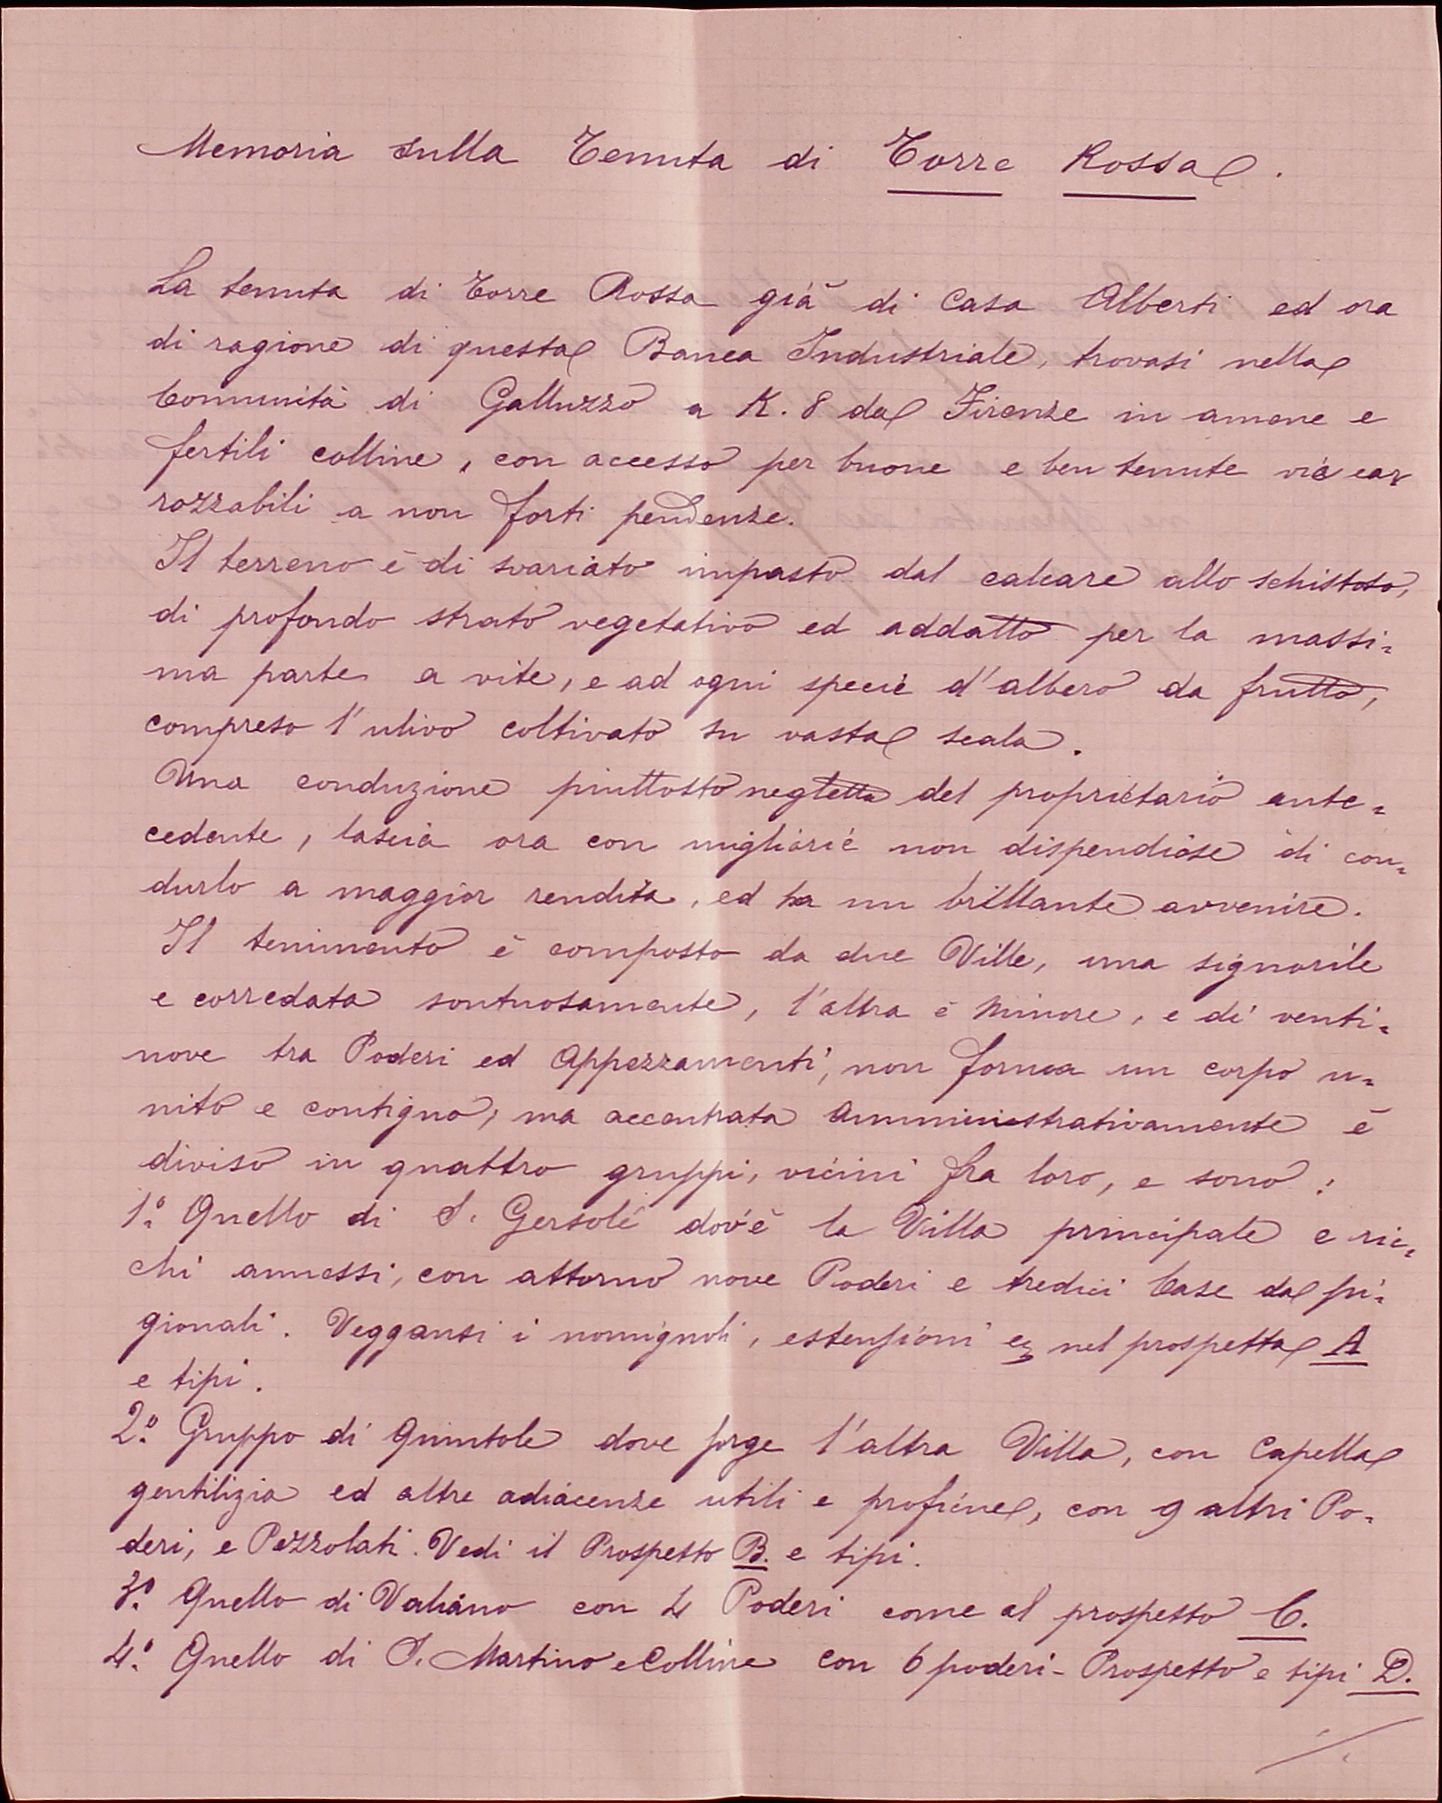 Memoria sulla Tenuta di Torre Rossa.
La tenuta di Torre Rossa già di Casa Alberti ed ora
di ragione di questa Banca Industriale, trovasi nella
Comunità di Galluzzo a K. 8 da Firenze in amene e
fertili colline, con accesso per buone e ben tenute vie car
rozzabili a non forti pendenze.
Il terreno è di svariato impasto dal calcare allo schistoso,
di profondo strato vegetativo ed addatto per la massi=
ma parte a vite, e ad ogni specie d'albero da frutto,
compreso l'ulivo coltivato su vasta scala.
Una conduzione piuttosto negletta del proprietario ante=
cedente, lascia ora con migliorie non dispendiose di con=
durlo a maggior rendita, ed ha un brillante avvenire.
Il tenimento è composto da due Ville, una signorile
e corredata sontuosamente, l'altra è minore, e di venti=
nove tra Poderi ed Appezzamenti, non forma un corpo u=
nito e contiguo, ma accentrata amministrativamente è
diviso in quattro gruppi, vicini fra loro, e sono:
1º. Quello di S. Gersolè dov'è la Villa principale e ric=
chi annessi, con attorno nove Poderi e tredici Case da pi=
gionali. Veggansi i nomignoli, estensioni ec nel prospetta A
e tipi.
2º. Gruppo di Quintole dove sorge l'altra Villa, con Capella
gentilizia ed altre adiacenze utili e proficue, con 9 altri Po=
deri, e Pezzolati. Vedi il Prospetto B. e tipi.
3º. Quello di Valiano con 4 Poderi come al prospetto C.
4º. Quello di S. Martino e Colline con 6 poderi - Prospetto e tipi D.
./.